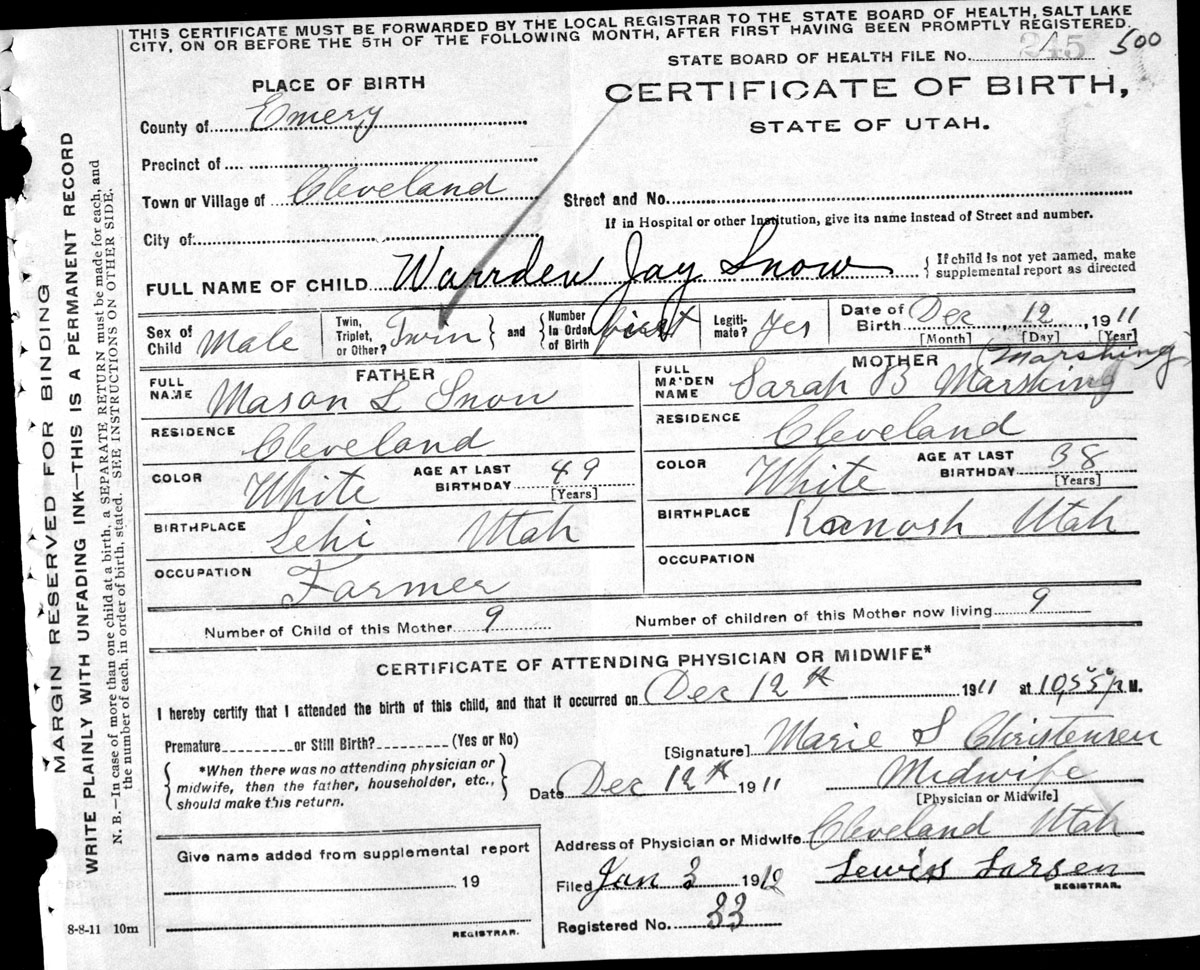 THIS CERTIFICATE MUST BE FORWARDED BY THE LOCAL REGISTRAR TO THE STATE BOARD OF HEALTH, SALT LAKE
CITY, ON OR BEFORE THE 5TH OF THE FOLLOWING MONTH, AFTER FIRST HAVING BEEN PROMPTLY REGISTERED.
STATE BOARD OF HEALTH FILE No. 245 500
PLACE OF BIRTH
CERTIFICATE OF BIRTH,
STATE OF UTAH.
County of Emery
Precinct of
Town or Village of Cleveland
Street and No.
If in Hospital or other Institution, give its name instead of Street and number.
City of
FULL NAME OF CHILD Warrden Jay Snow
{ If child is not yet named, make
supplemental report as directed
Sex of Child Male
Twin, Triplet, or Other? Twin } and { Number In Order of Birth first
Legitimate? Yes
Date of Birth Dec 12, 1911
[Month] [Day] [Year]
FATHER
FULL NAME Mason L Snow
RESIDENCE Cleveland
COLOR White AGE AT LAST BIRTHDAY 49
[Years]
BIRTHPLACE Lehi Utah
OCCUPATION Farmer
MOTHER (Marshing)
FULL MAIDEN NAME Sarah B Marshing
RESIDENCE Cleveland
COLOR White AGE AT LAST BIRTHDAY 38
[Years]
BIRTHPLACE Kanosh Utah
OCCUPATION
Number of Child of this Mother 9
Number of children of this Mother now living 9
CERTIFICATE OF ATTENDING PHYSICIAN OR MIDWIFE*
I hereby certify that I attended the birth of this child, and that it occurred on Dec 12th 1911 at 10,55 P.M.
Premature or Still Birth? (Yes or No)
[Signature] Marie S Christensen
{ *When there was no attending physician or
midwife, then the father, householder, etc.,
should make this return. }
Date Dec 12th 1911
Midwife
[Physician or Midwife]
Address of Physician or Midwife Cleveland Utah
Give name added from supplemental report
19
REGISTRAR.
Filed Jan 3 1912 Lewis Larsen
REGISTRAR.
Registered No. 33
8-8-11 10m
MARGIN RESERVED FOR BINDING
WRITE PLAINLY WITH UNFADING INK—THIS IS A PERMANENT RECORD
N. B.—In case of more than one child at a birth, a SEPARATE RETURN must be made for each, and
the number of each, in order of birth, stated. SEE INSTRUCTIONS ON OTHER SIDE.